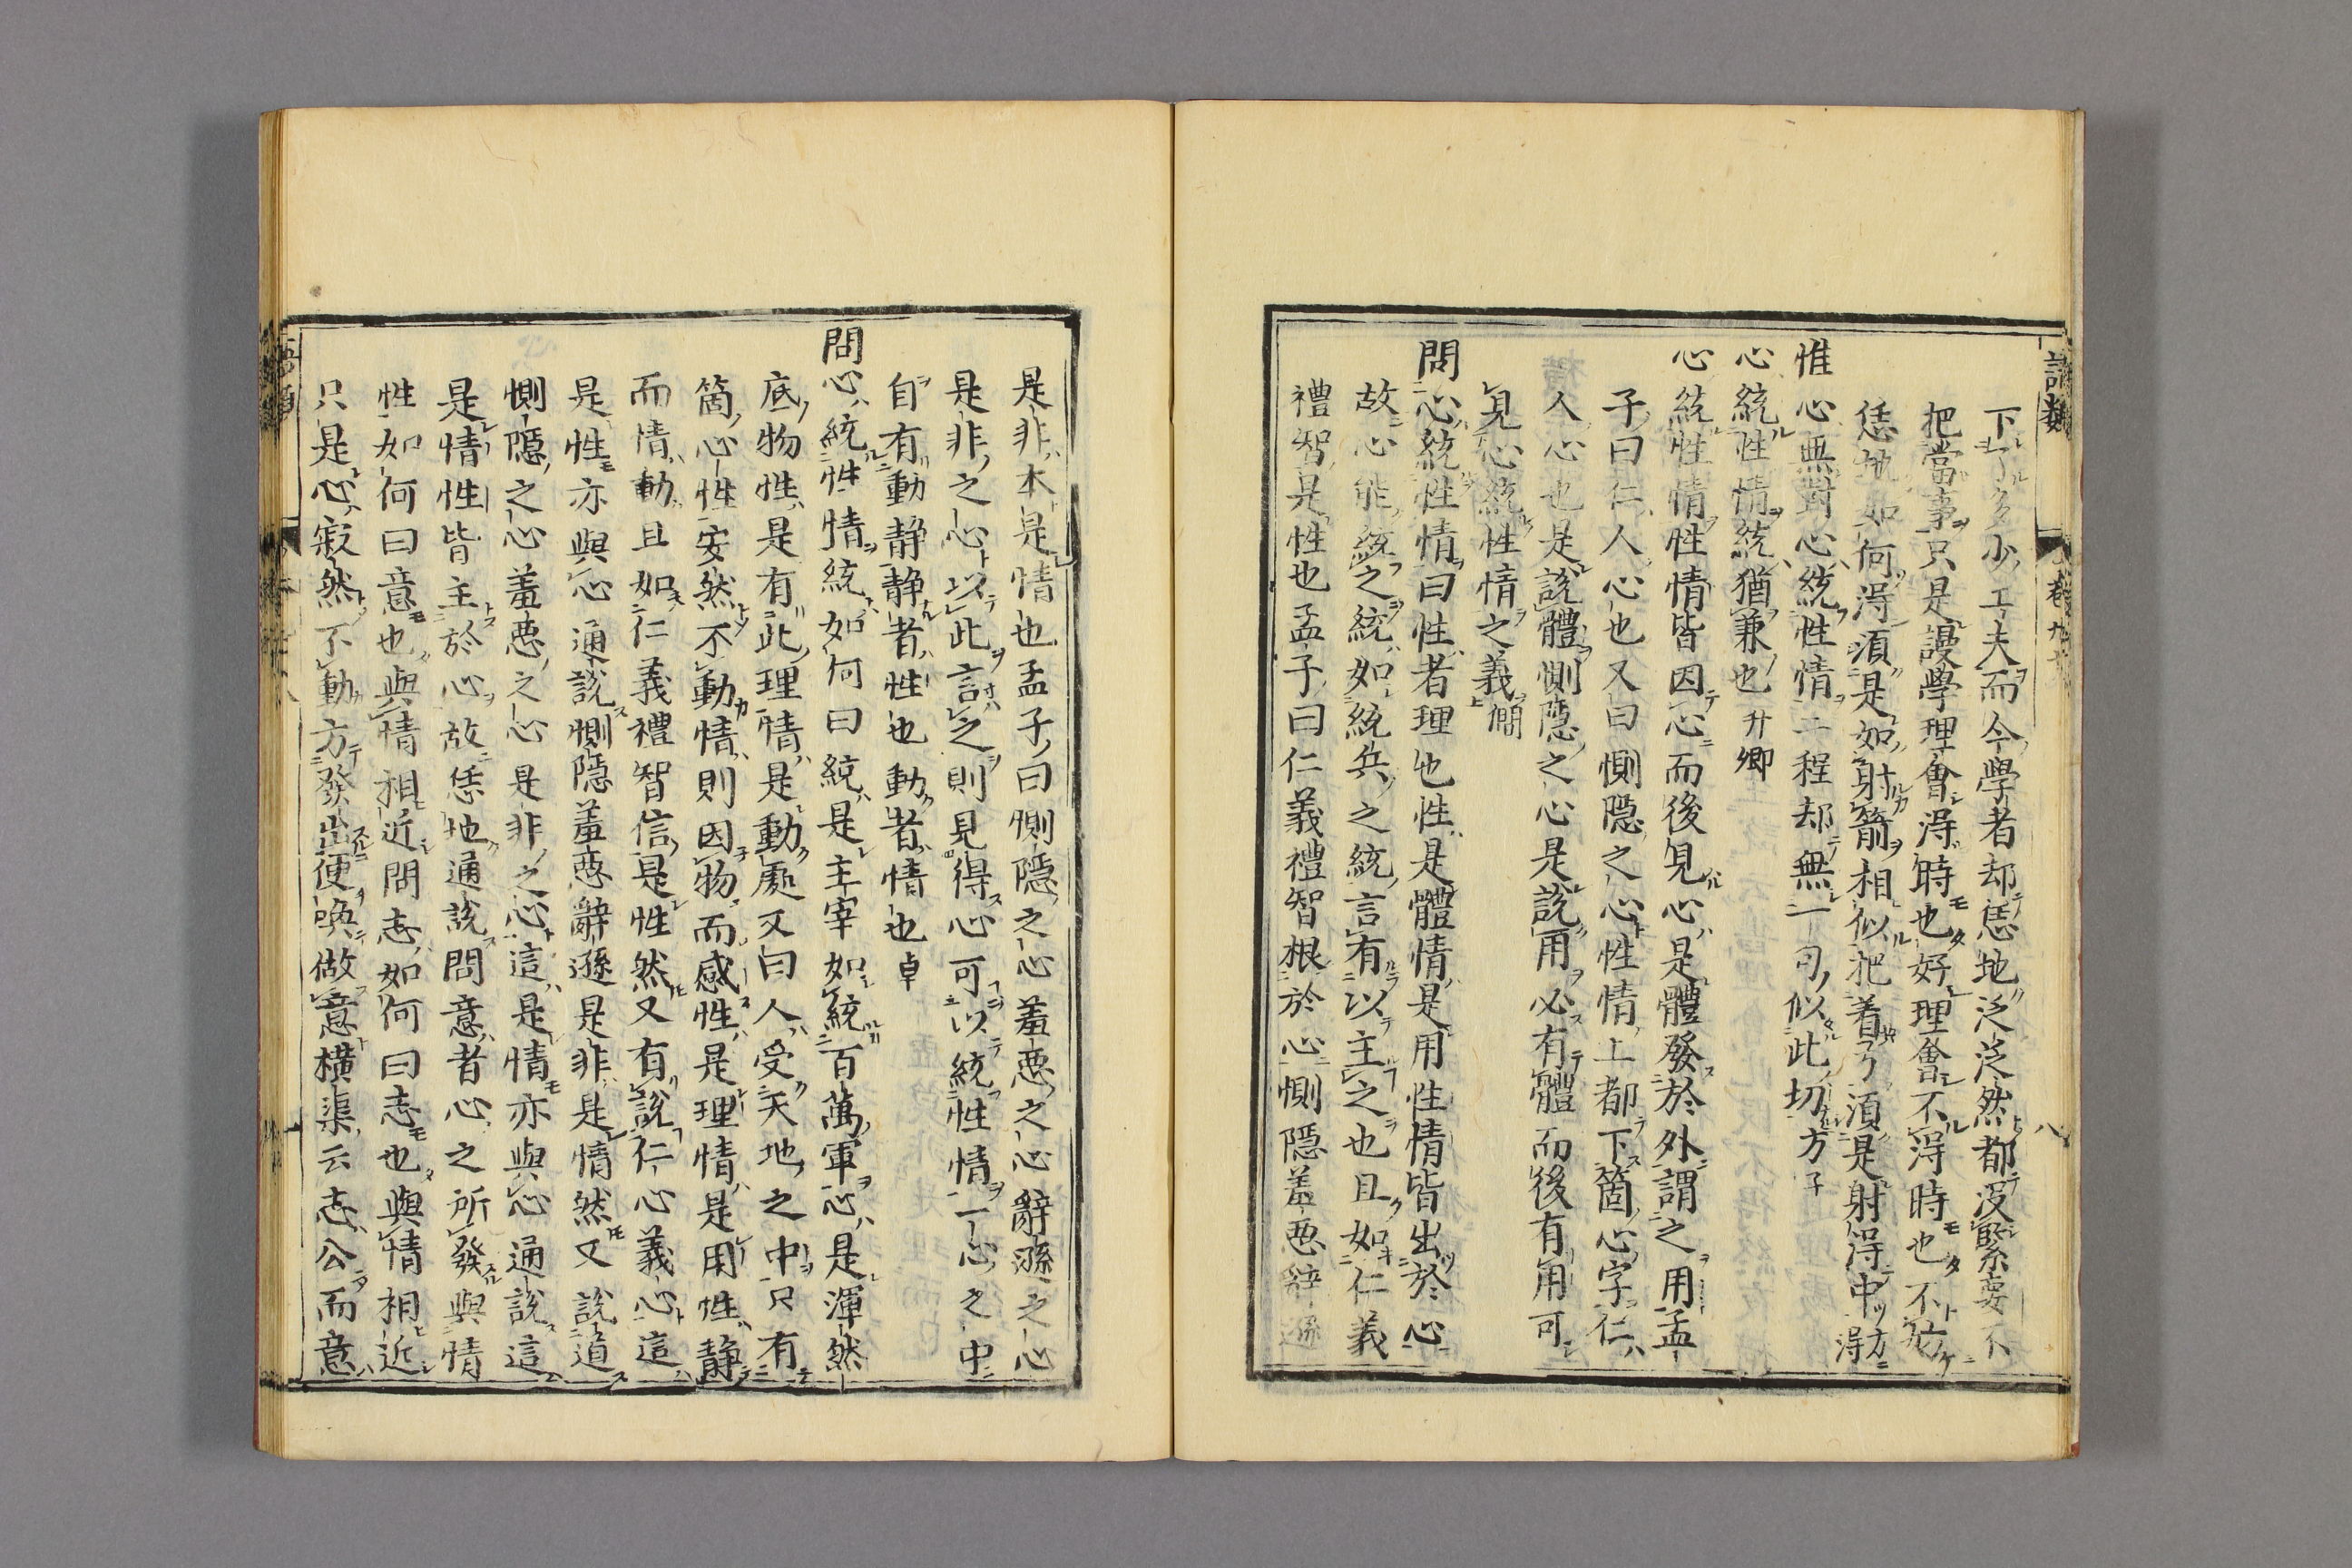 語類
卷九十八
八
下了多少工夫而今學者却恁地泛泛然都没緊要不
把當事只是謾學理會得時也好理會不得時也不妨
恁地如何得須是如射箭相似把着弓須是射得中方得
惟心無對心統性情二程却無一句似此切方子
心統性情統猶兼也升卿
心統性情性情皆因心而後見心是體發於外謂之用孟
子曰仁人心也又曰惻隱之心性情上都下箇心字仁
人心也是說體惻隱之心是說用必有體而後有用可
見心統性情之義僩
問心統性情曰性者理也性是體情是用性情皆出於心
故心能統之統如統兵之統言有以主之也且如仁義
禮智是性也孟子曰仁義禮智根於心惻隱羞惡辭遜
是非本是情也孟子曰惻隱之心羞惡之心辭遜之心
是非之心以此言之則見得心可以統性情一心之中
自有動静静者性也動者情也卓
問心統性情統如何曰統是主宰如統百萬軍心是渾然
底物性是有此理情是動處又曰人受天地之中只有
箇心性安然不動情則因物而感性是理情是用性静
而情動且如仁義禮智信是性然又有說仁心義心這
是性亦與心通說惻隱羞惡辭遜是非是情然又說道
惻隱之心羞惡之心是非之心這是情亦與心通說這
是情性皆主於心故恁地通說問意者心之所發與情
性如何曰意也與情相近問志如何曰志也與情相近
只是心寂然不動方發出便喚做意橫渠云志公而意